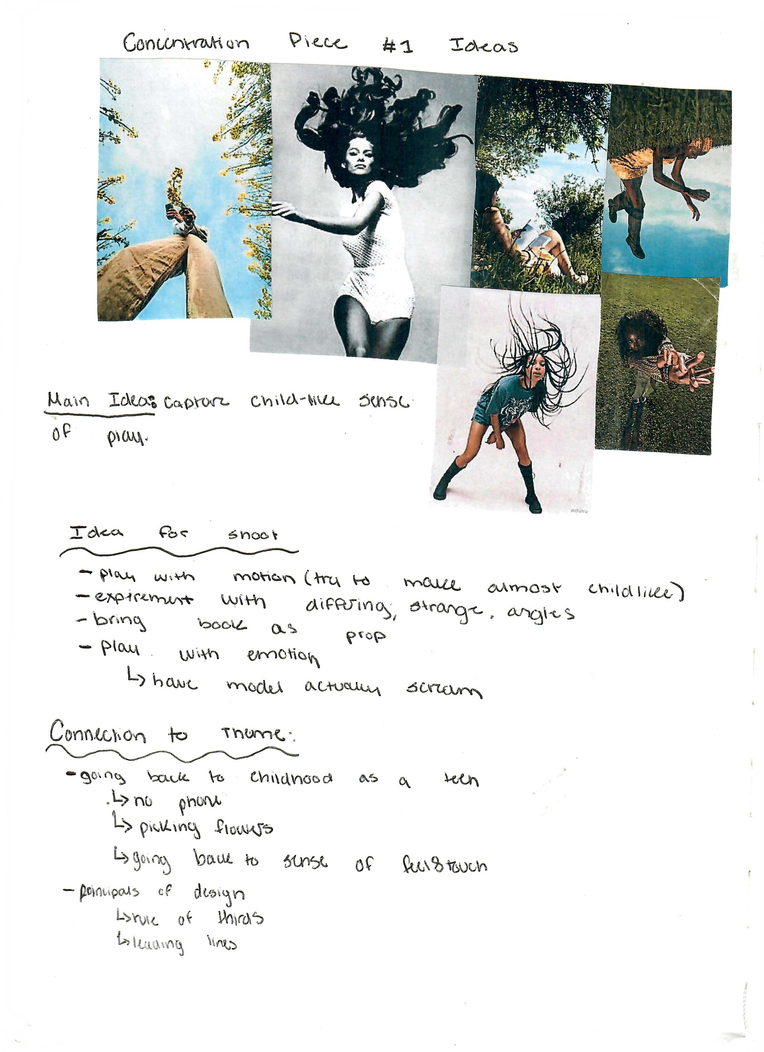 Concentration Piece #1 Ideas
Main Idea: Capture child-like sense
of play.
Idea for shoot
- play with motion (try to make almost childlike)
- exptrement with differing, strange, angles
- bring book as prop
- Play with emotion
↳ have model actually scream
Connection to Theme:
- going back to childhood as a teen
↳ no phone
↳ picking flowers
↳ going back to sense of feel & touch
- principals of design
↳ rule of thirds
↳ leading lines